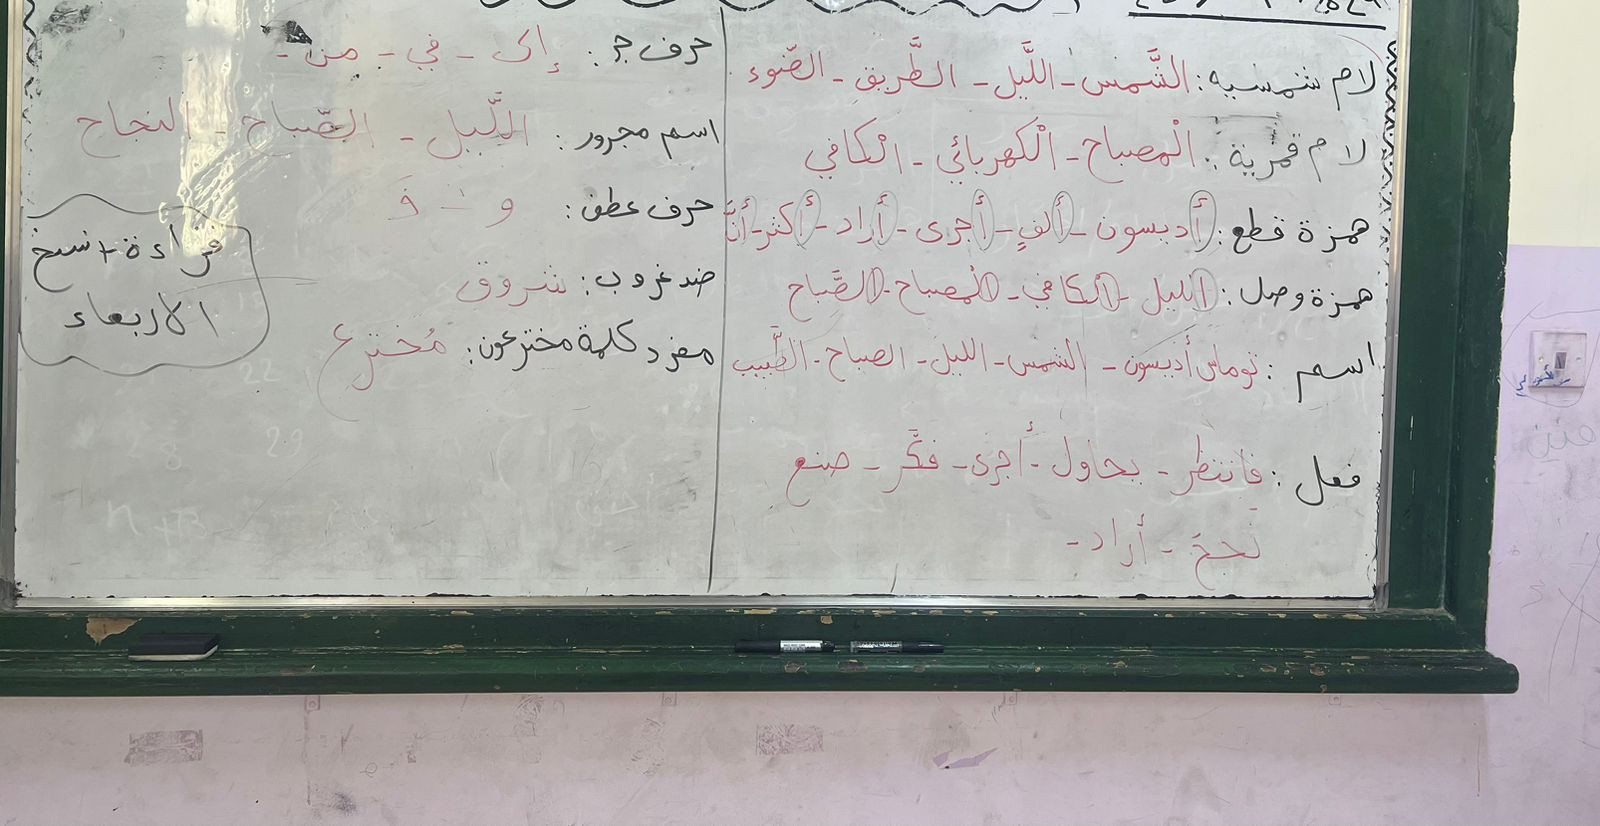 لام شمسيه: الشَّمس - اللَّيل - الطَّريق - الضّوء
لام قمرية: الْمصباح - الْكهربائي - الْكافي
همزة قطع: أديسون - ألفٍ - أجرى - أراد - أكثر - أنَّ
همزة وصل: الليل - الكافي - المصباح - الصَّباح
اسم: توماس أديسون - الشمس - الليل - الصباح - الطَّبيب
فعل: فانتظر - يحاول - أجرى - فكَّر - صنع
نَجحَ - أراد -
حرف جر: إلى - في - من -
اسم مجرور: اللَّيل - الصَّباح - النجاح
حرف عطف: و - فَ
ضد غروب: شروق
مفرد كلمة مخترعون: مُخترع
قراءة + نسخ
الاربعاء